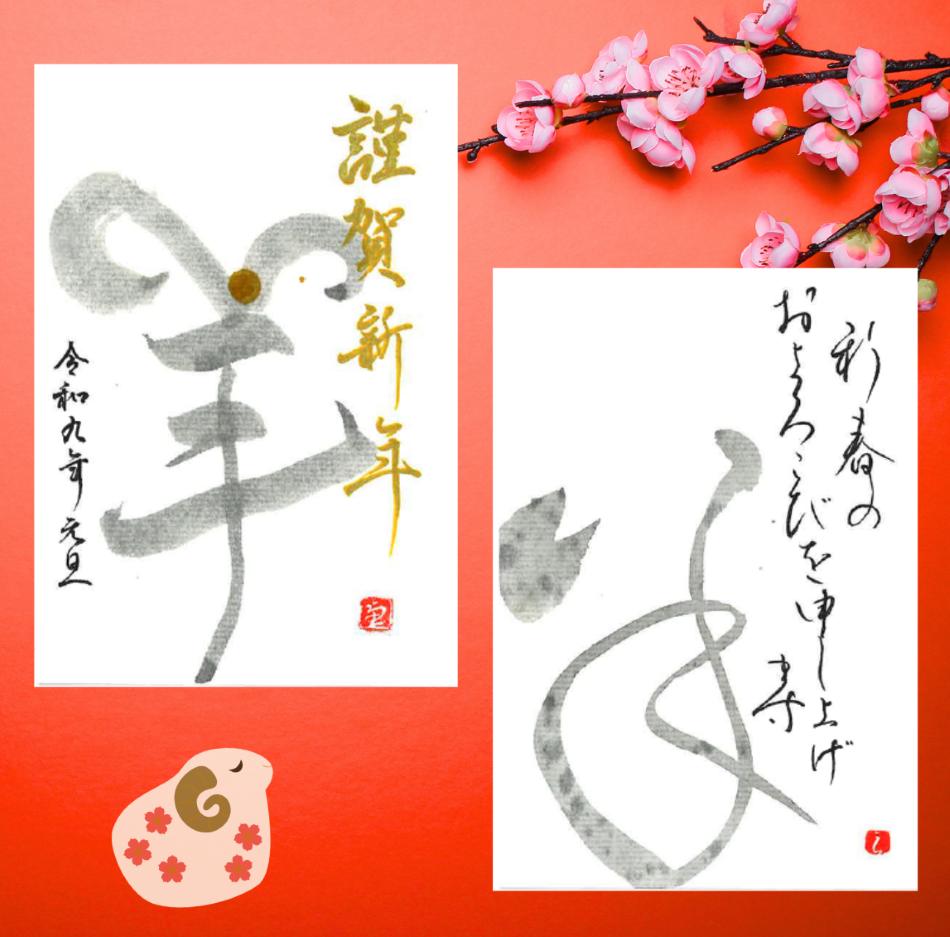 謹賀新年
羊
令和九年 元旦
新春の
およろこびを申し上げ
ます